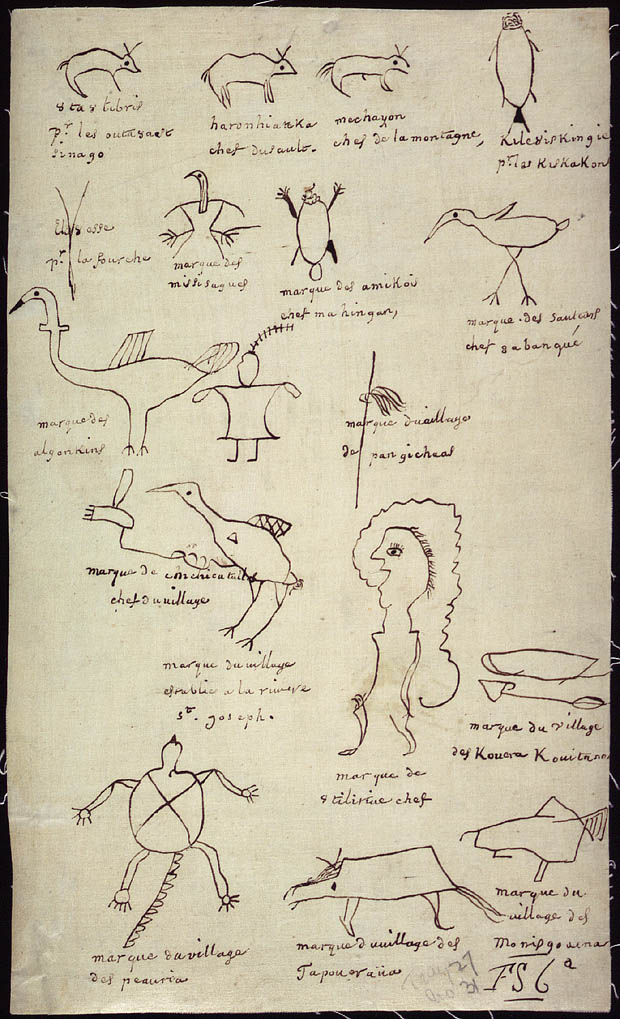 8ta8libris
pr. les outa8aes
sinago
haronhiateka
chef du sault.
mechayon
chef de la montagne,
Kile8iskingié
pr. les Kiskakon
Elu8esse
pr. la fourche
marque des
missisagues
marque des amikois
chef mahingan,
marque des saulteurs
chef 8abangué
marque des
algonkins
marque du village
de pangicheas
marque de chichicatalo
chef du village
marque du village
establie a la riviere
st. joseph.
marque de
8tilirine chef
marque du village
des Kouera Kouitanon
marque du village
des peauria
marque du village des
Tapouaraüa
marque du
village des
Monisgouena
FS 6a